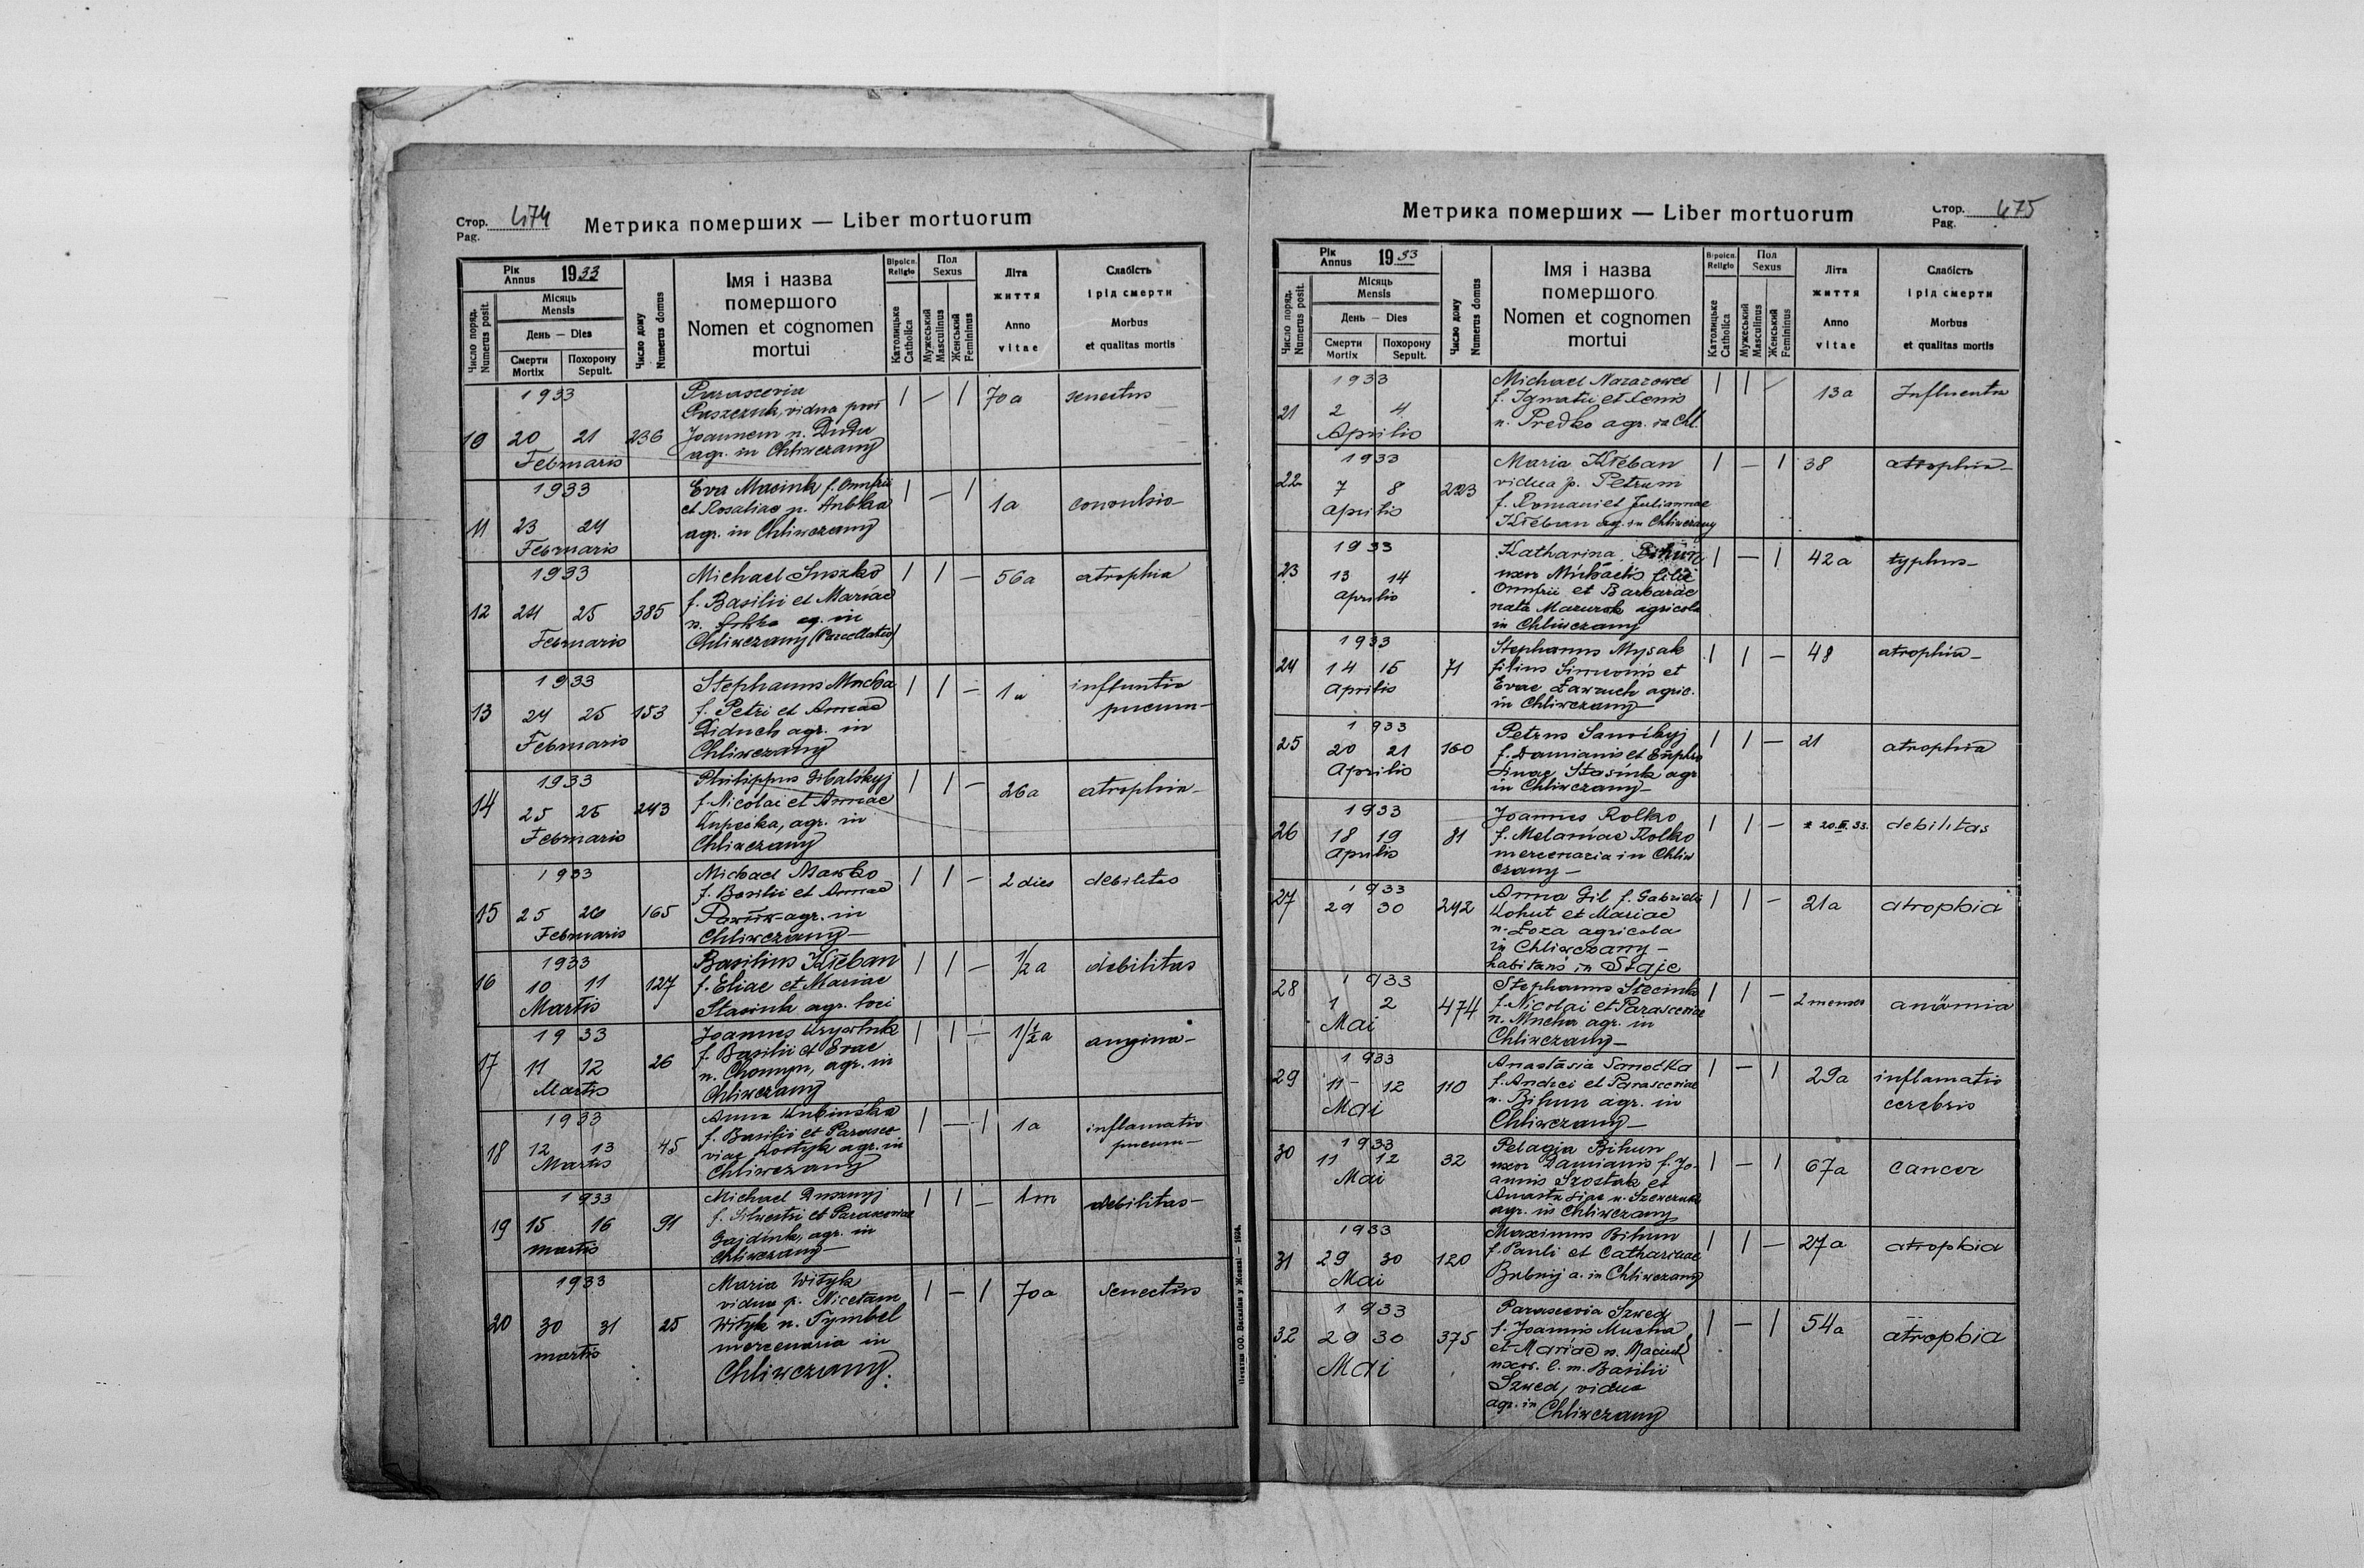 Стор. 474
Pag.
Метрика померших — Liber mortuorum
Рік
Annus
1933
Число поряд.
Numerus posit.
Місяць
Mensis
День — Dies
Смерти
Mortix
Похорону
Sepult.
Число дому
Numerus domus
Імя і назва
помершого
Nomen et cognomen
mortui
Віроісп.
Religio
Католицьке
Catholica
Пол
Sexus
Мужеський
Masculinus
Женський
Femininus
Літа
життя
Anno
vitae
Слабість
і рід смерти
Morbus
et qualitas mortis
1933
10 20 21 236
Februario
Parascevia
vidua post
Joannem n. Duda
agr. in Chliwczany
| — | 70 a senectus
1933
11 23 24
Februario
Eva Maciuk f. Onufrii
et Rosaliae n.
agr. in Chliwczany
| — | 1 a convulsio
1933
12 24 25 385
Februario
Michael Suszko
f. Basilii et Mariae
n. ag. in
Chliwczany (Parcellatio)
| | — 56 a atrophia
1933
13 24 25 153
Februario
Stephanus Mucha
f. Petri et Annae
Diduch agr. in
Chliwczany
| | — 1 a
pneum—
1933
14 25 26 243
Februario
Philippus
f. Nicolai et Annae
agr. in
Chliwczany
| | — 26 a atrophia—
1933
15 25 26 165
Februario
Michael Mawko
f. Basilii et Annae
agr. in
Chliwczany—
| | — 2 dies debilitas
1933
16 10 11 127
Martio
Basilius Kłeban
f. Eliae et Mariae
Stasiuk agr. loci
| | — 1/2 a debilitas
1933
17 11 12 26
Martio
Joannes
f. Basilii et Evae
n. agr. in
Chliwczany
| | — 1 1/2 a angina—
1933
18 12 13 45
Martio
Anna Kubińska
f. Basilii et Parasce-
viae Kostyk agr. in
Chliwczany
| — | 1 a inflamatio
pneum—
1933
19 15 16 91
martio
Michael
f. Silvestri et Parasceviae
Gajdiuk, agr. in
Chliwczany—
| | — 1 m debilitas—
1933
20 30 31 25
martio
Maria Wityk
vidua p. Nicetam
Wityk n. Tymbel
mercenaria in
Chliwczany.
| — | 70 a Senectus
Метрика померших — Liber mortuorum
Стор. 475
Pag.
Рік
Annus
1933
Число поряд.
Numerus posit.
Місяць
Mensis
День — Dies
Смерти
Mortix
Похорону
Sepult.
Число дому
Numerus domus
Імя і назва
помершого
Nomen et cognomen
mortui
Віроісп.
Religio
Католицьке
Catholica
Пол
Sexus
Мужеський
Masculinus
Женський
Femininus
Літа
життя
Anno
vitae
Слабість
і рід смерти
Morbus
et qualitas mortis
1933
21 2 4
Aprilio
Michael Nazarowec
f. Ignatii et Xenis
n. Predko agr. in Chl.
| | — 13 a Influenta
1933
22 7 8 223
aprilio
Maria Kłeban
vidua p. Petrum
f. Romani et Juliannae
Kłeban ag. in Chliwczany
| — | 38 atrophia—
1933
23 13 14
aprilio
Katharina Bihun
uxor Michaelis filia
Onufrii et Barbarae
nata Mazurok agricola
in Chliwczany
| — | 42 a typhus—
1933
24 14 15 71
aprilio
Stephanus Mysak
filius Simeonis et
Evae Ławruch agric.
in Chliwczany—
| | — 48 atrophia—
1933
25 20 21 160
Aprilio
Petrus Sanockyj
f. Damianis et Euphro
sinae Stasiuk agr
in Chliwczany—
| | — 21 atrophia
1933
26 18 19 81
aprilio
Joannes Rolko
f. Melaniae Rolko
mercenaria in Chliw
czany—
| | — debilitas
1933
27 29 30 242
Anna Gil f. Gabrielis
Kohut et Mariae
n. Łoza agricola
in Chliwczany—
habitans in
| | — 21 a atrophia
1933
28 1 2 474
Mai
Stephanus Steciuk
f. Nicolai et Parasceviae
n. Mucha agr. in
Chliwczany—
| | — 2 menses anämia
1933
29 11 — 12 110
Mai
Anastasia Sanocka
f. Andrei et Parasceviae
n. Bihun agr. in
Chliwczany—
| — | 29 a inflamatio
cerebris
1933
30 11 12 32
Mai
Pelagia Bihun
uxor Damianis f. Jo-
annis Szostak et
Anastasiae n. Szewczuk
agr. in Chliwczany
| — | 67 a cancer
1933
31 29 30 120
Mai
Maximus Bihun
f. Pauli et Catharinae
Bubnij a. in Chliwczany
| | — 27 a atrophia
1933
32 29 30 375
Mai
Parascevia Szwed
f. Joannis Mucha
et Mariae n. Maciuk
uxor. l. m. Basilii
Szwed, vidua
agr. in Chliwczany
| — | 54 a atrophia